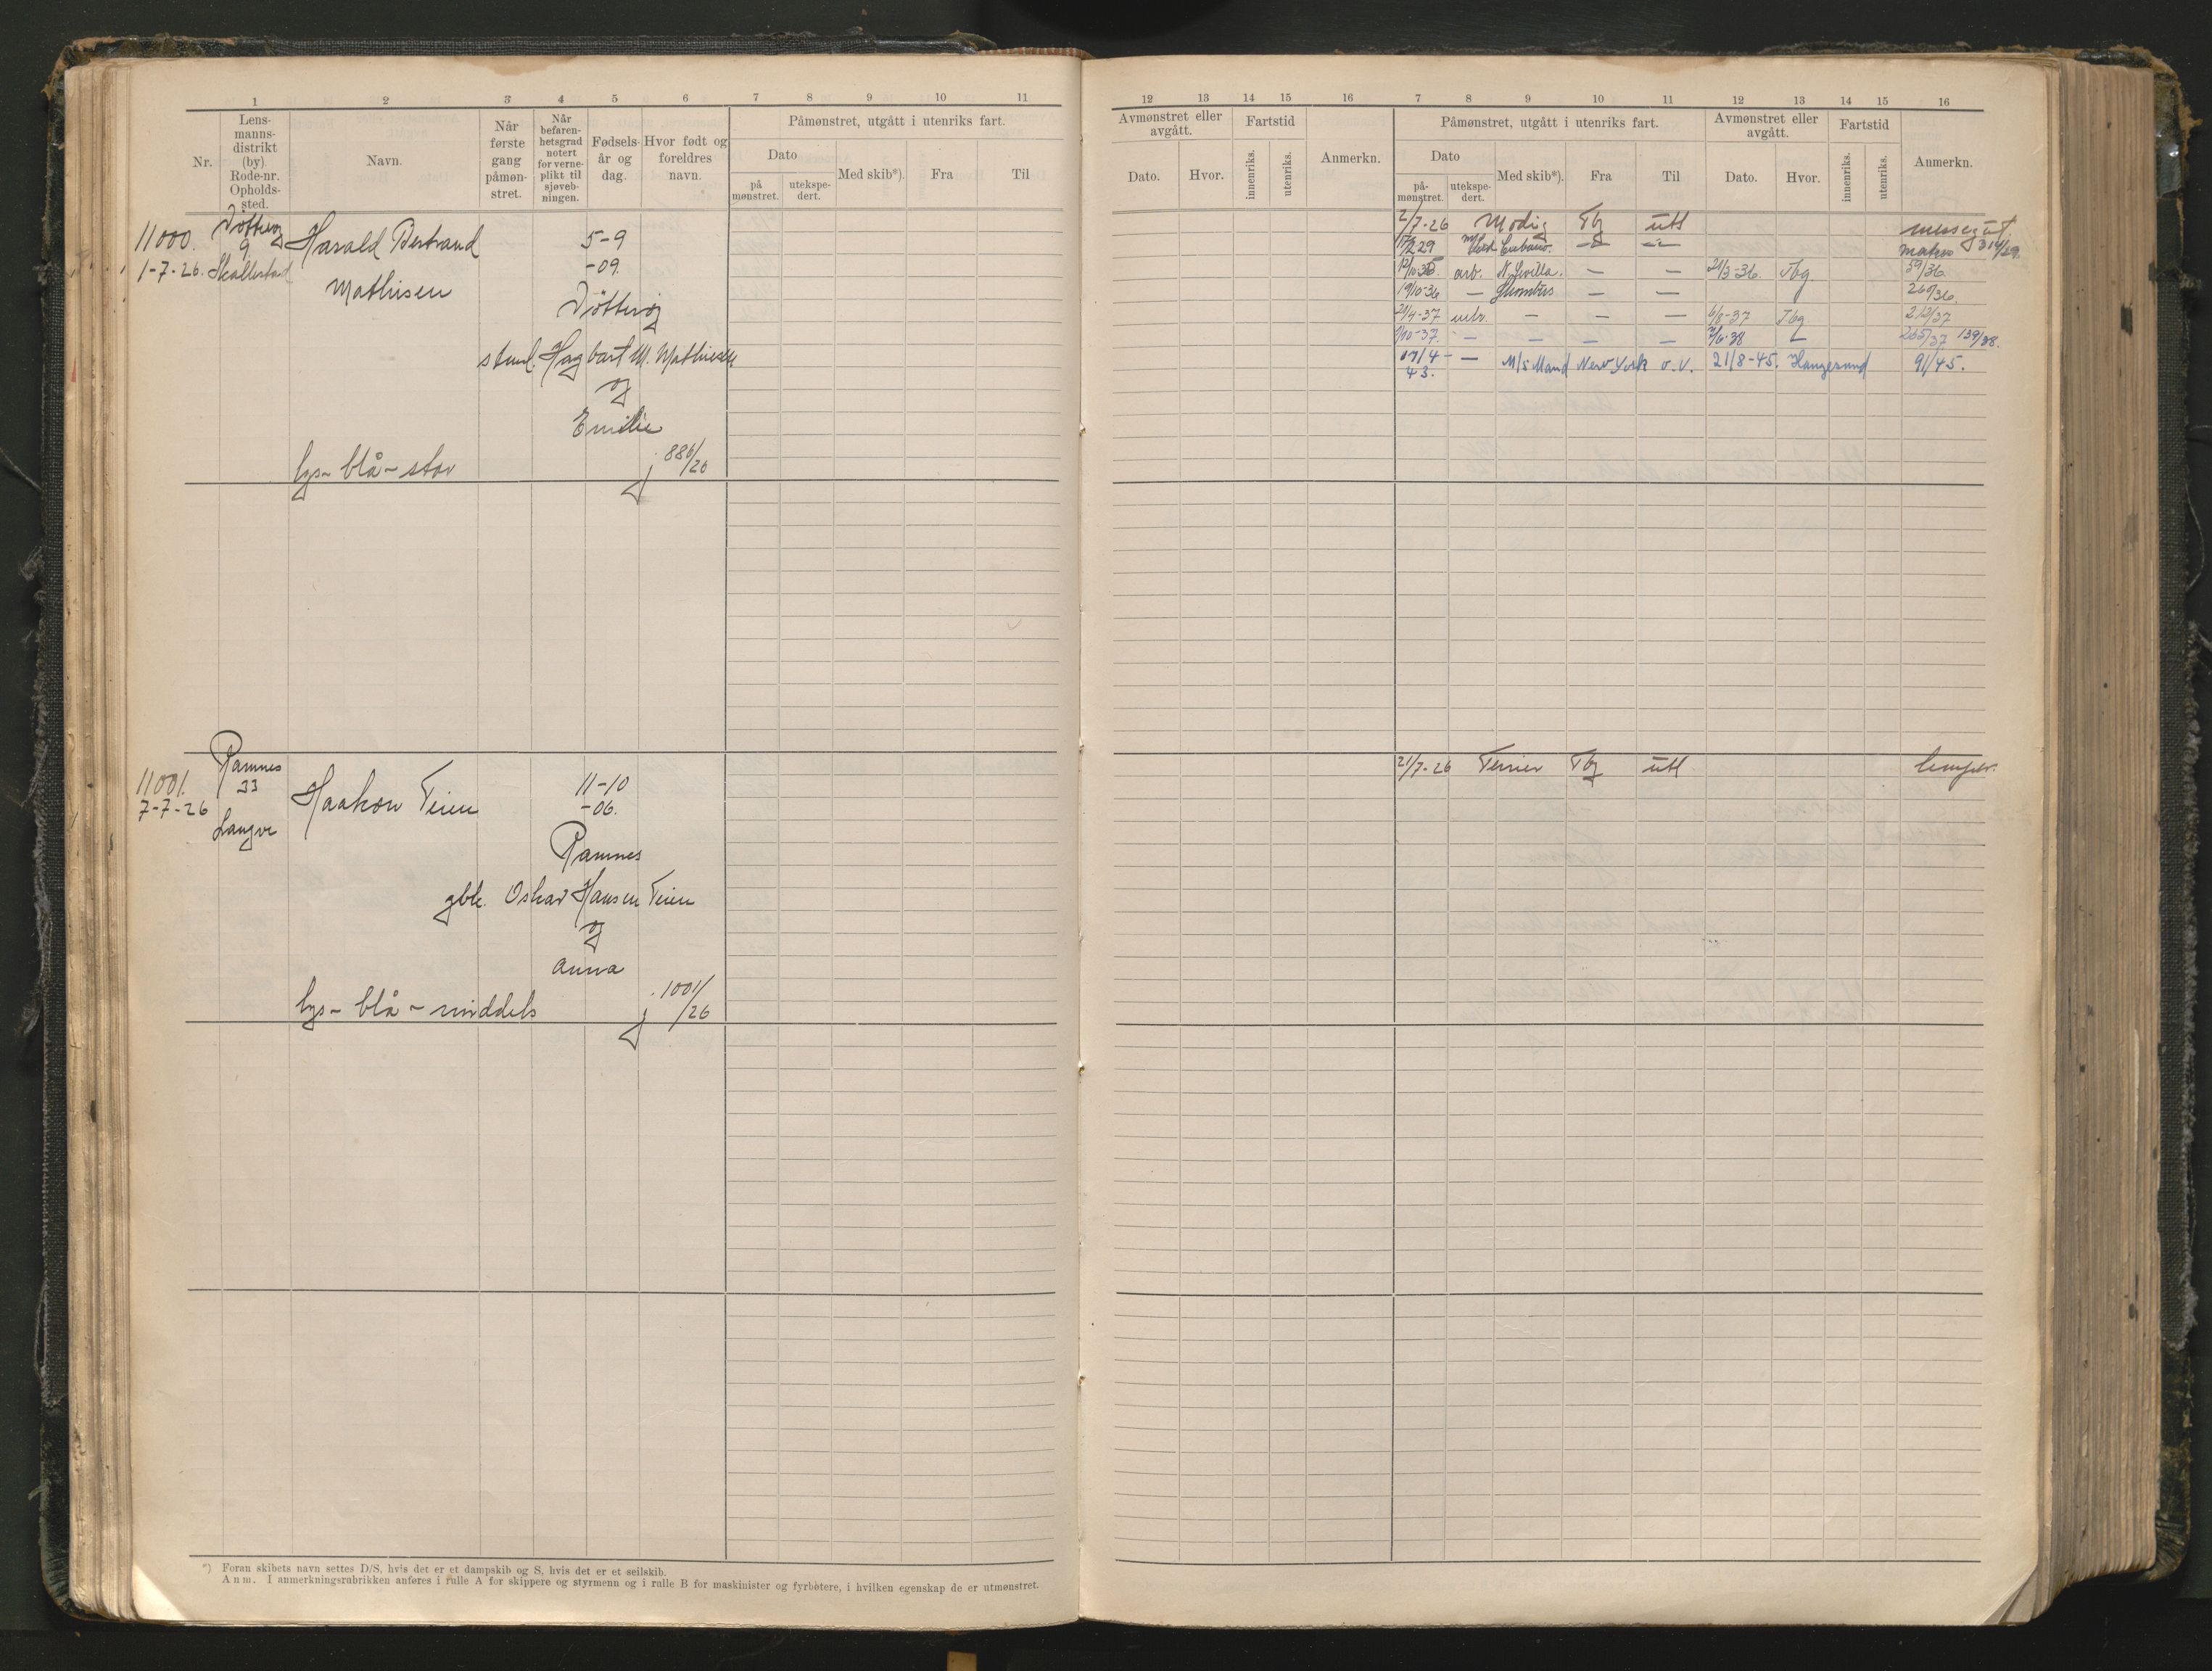 1 2 3 4 5 6 7 8 9 10 11
Nr.
Lens-
manns-
distrikt
(by).
Rode-nr.
Opholds-
sted.
Navn.
Når
første
gang
påmøn-
stret.
Når
befaren-
hetsgrad
notert
for verne-
plikt til
sjøveb-
ningen.
Fødsels-
år og
dag.
Hvor født og
foreldres
navn.
Påmønstret, utgått i utenriks fart.
Dato
på
mønstret.
utekspe-
dert.
Med skib*).
Fra
Til
11000.
1-7-26.
9
Harald Bertrand
Mathisen
5-9
-09.
Hagbart M. Mathisen
og
Emilie
lys - blå - stor
j. 886/26
11001.
7-7-26
Ramnes
33
Haakon Teien
11-10
-06.
Ramnes
gbk. Oskar Hansen Teien
og
Anna
lys - blå - middels
j. 1001/26
*) Foran skibets navn settes D/S, hvis det er et dampskib og S, hvis det er et seilskib.
Anm. I anmerkningsrubrikken anføres i rulle A for skippere og styrmenn og i rulle B for maskinister og fyrbøtere, i hvilken egenskap de er utmønstret.
12 13 14 15 16 7 8 9 10 11 12 13 14 15 16
Avmønstret eller
avgått.
Dato.
Hvor.
Fartstid
innenriks.
utenriks.
Anmerkn.
Påmønstret, utgått i utenriks fart.
Dato
på-
mønstret.
utekspe-
dert.
Med skib*).
Fra
Til
Avmønstret eller
avgått.
Dato.
Hvor.
Fartstid
innenriks.
utenriks.
Anmerkn.
2/7-26 Modig Tbg utl
— — 21/3-36. Tbg 59/36.
19/10-36 — — — 260/36.
21/4-37 — — — 6/8-37 Tbg 212/37
1/10-37. — — — — 265/37 139/38.
43. — M/S Mand New York o.V. 21/8-45. Haugesund 91/45.
21/7-26 Terrier Tbg utl